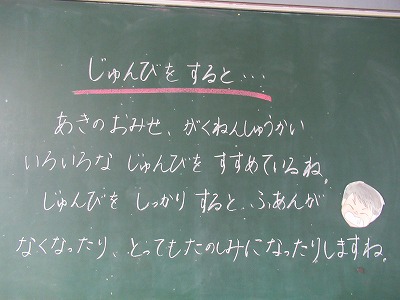 じゅんびをすると…
あきのおみせ、がくねんしゅうかい
いろいろな じゅんびを すすめているね。
じゅんびを しっかり すると、ふあんが
なくなったり、とってもたのしみになったりしますね。